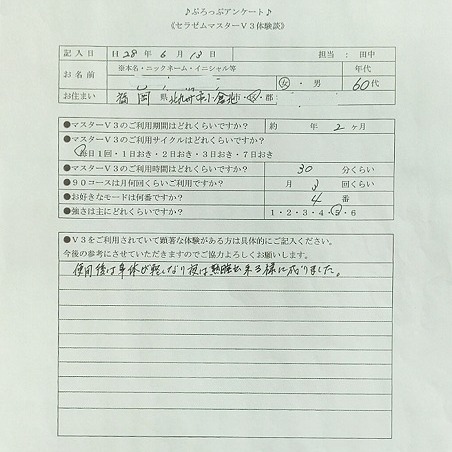 ♪ぷろっぷアンケート♪
《セラゼムマスターV3体験談》
記入日 H 28 年 6 月 13 日 担当 : 田中
お名前 ※本名・ニックネーム・イニシャル等 女・男 年代 60代
お住まい 福岡 県 北九州市小倉北 市・区・郡
●マスターV3のご利用期間はどれくらいですか? 約 年 2 ヶ月
●マスターV3のご利用サイクルはどれくらいですか?
毎日1回・1日おき・2日おき・3日おき・7日おき
●マスターV3のご利用時間はどれくらいですか? 30 分くらい
●90コースは月何回くらいご利用ですか? 月 3 回くらい
●お好きなモードは何番ですか? 4 番
●強さは主にどれくらいですか? 1・2・3・4・5・6
●V3をご利用されていて顕著な体験がある方は具体的にご記入ください。
今後の参考にさせていただきますのでご協力よろしくお願いします。
使用後は身体が軽くなり夜は熟睡出来る様に成りました。